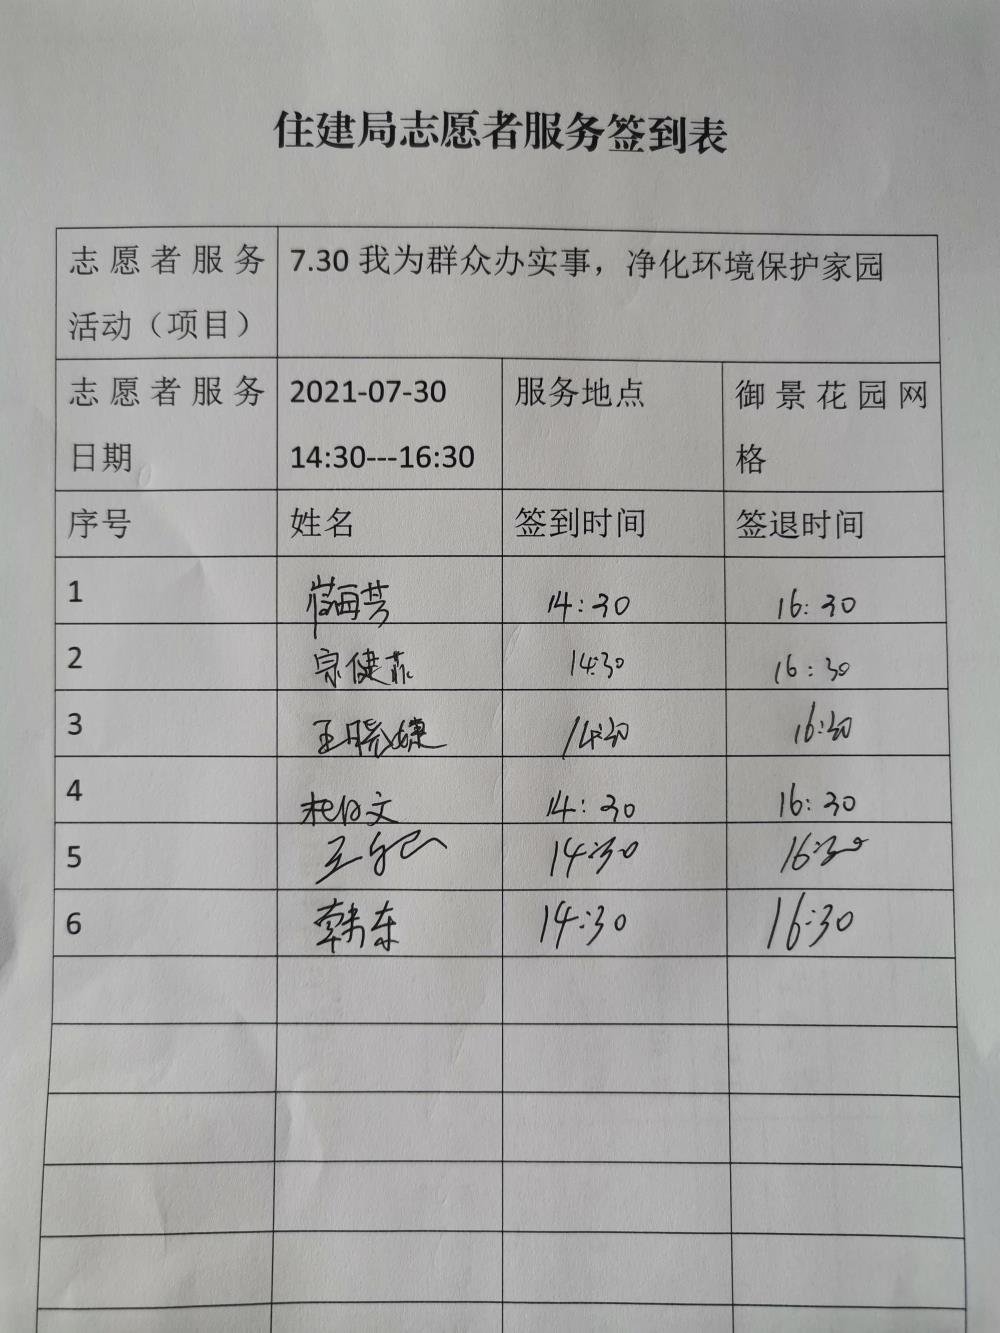 住建局志愿者服务签到表
志愿者服务 7.30 我为群众办实事，净化环境保护家园
活动（项目）
志愿者服务 2021-07-30 服务地点 御景花园网
日期 14:30---16:30 格
序号 姓名 签到时间 签退时间
1 14:30 16:30
2 宗健 14:30 16:30
3 王晓 14:30 16:30
4 文 14:30 16:30
5 王 14:30 16:30
6 韩东 14:30 16:30